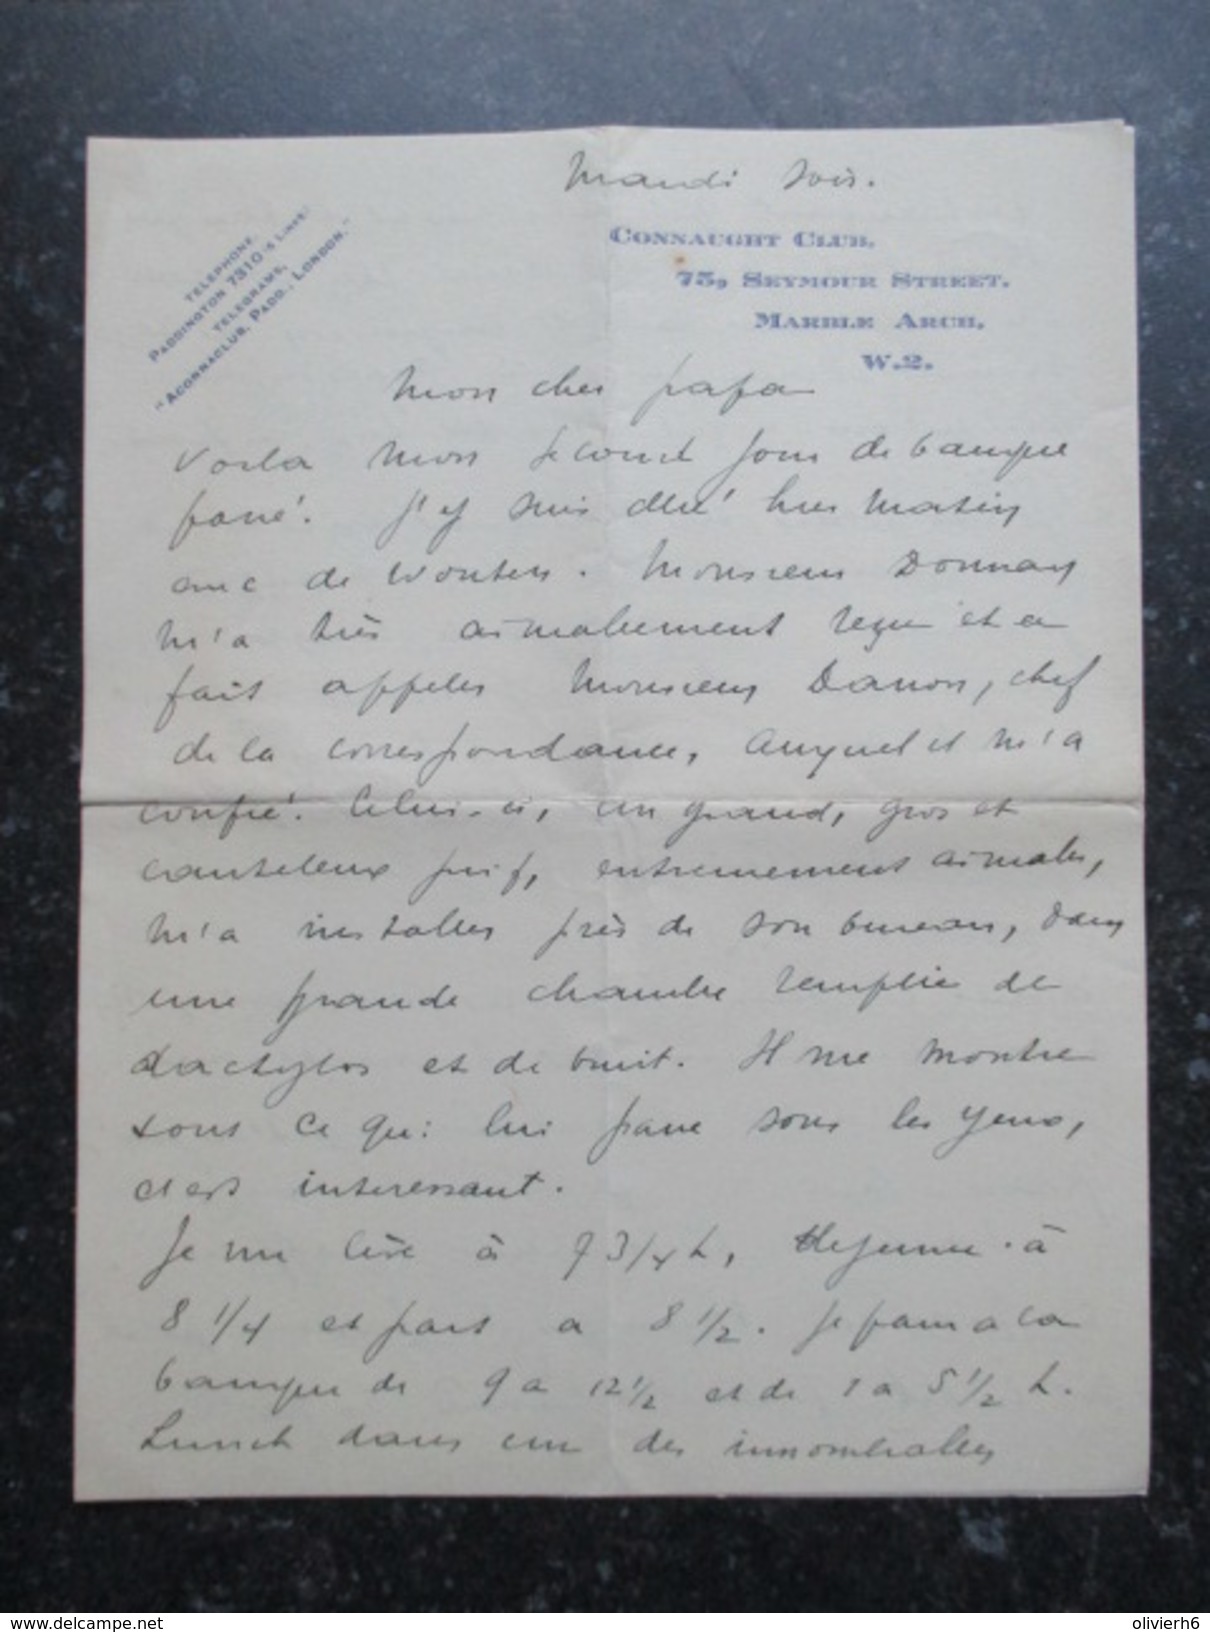 Mardi soir.
TELEPHONE.
PADDINGTON 7310 (5 LINES.)
TELEGRAMS,
"ACONNACLUB, PADD., LONDON."
CONNAUGHT CLUB,
75, SEYMOUR STREET,
MARBLE ARCH,
W.2.
Mon cher papa
Voila mon second jour de banque
passé. J'y suis allé hier matin
avec de Wouters. Monsieur Donnay
m'a très aimablement reçu et a
fait appeler Monsieur Danon, chef
de la correspondance, auquel il m'a
confié. Celui-ci, un grand, gros et
cauteleux juif, extremement aimable,
m'a installer près de son bureau, dans
une grande chambre remplie de
dactylos et de bruit. Il me montre
tout ce qui lui passe sous les yeux,
c'est interessant.
Je me lève à 7 3/4 h, dejeune à
8 1/4 et part a 8 1/2. Je passe a la
banque de 9 a 12 1/2 et de 1 a 5 1/2 h.
Lunch dans un des innombrables
delcampe.net
olivierh6